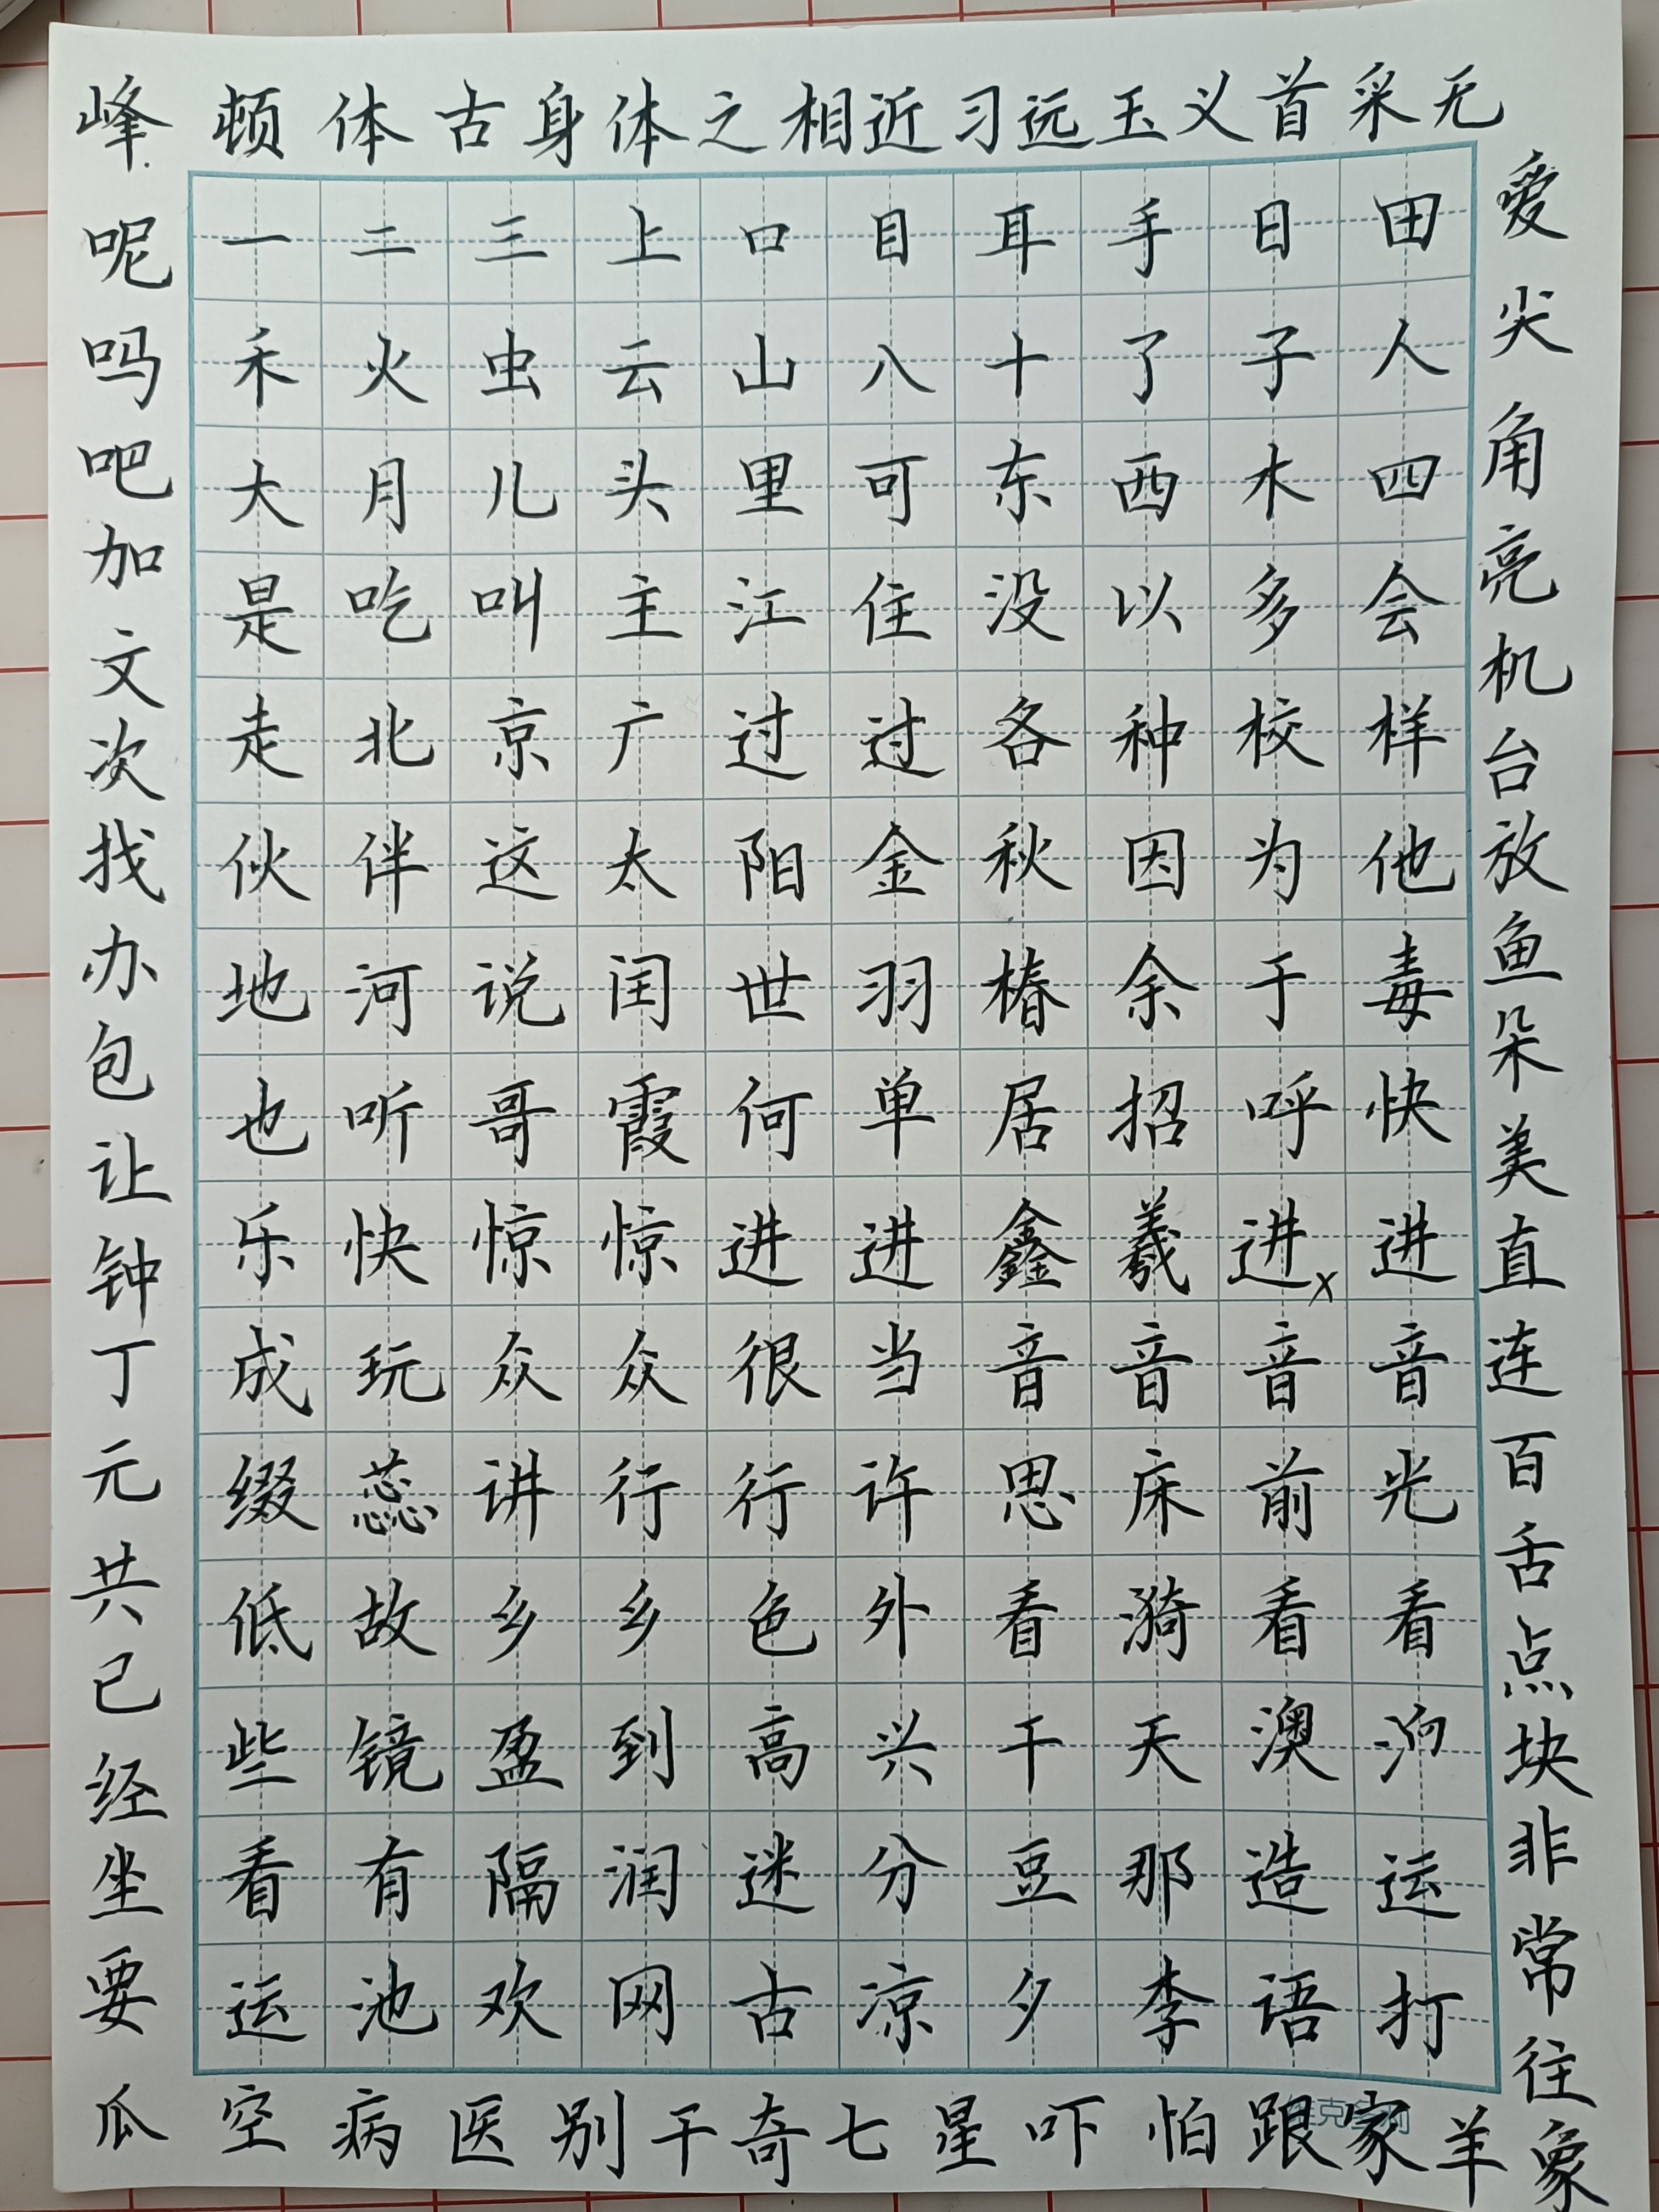 峰顿体古身体之相近习远玉义首采无
一二三上口目耳手日田
禾火虫云山八十了子人
大月儿头里可东西木四
是吃叫主江住没以多会
走北京广过过各种校样
伙伴这太阳金秋因为他
地河说闰世羽椿余于毒
也听哥霞何单居招呼快
乐快惊惊进进鑫羲进x进
成玩众众很当音音音音
缀蕊讲行行许思床前光
低故乡乡色外看漪看看
些镜盈到高兴干天澳
看有隔润迷分豆那造运
运池欢网古凉夕李语打
呢吗吧加文次找办包让钟丁元共已经坐要
爱尖角亮机台放鱼朵美直连百舌点块非常往象
瓜空病医别干奇七星吓怕跟家羊